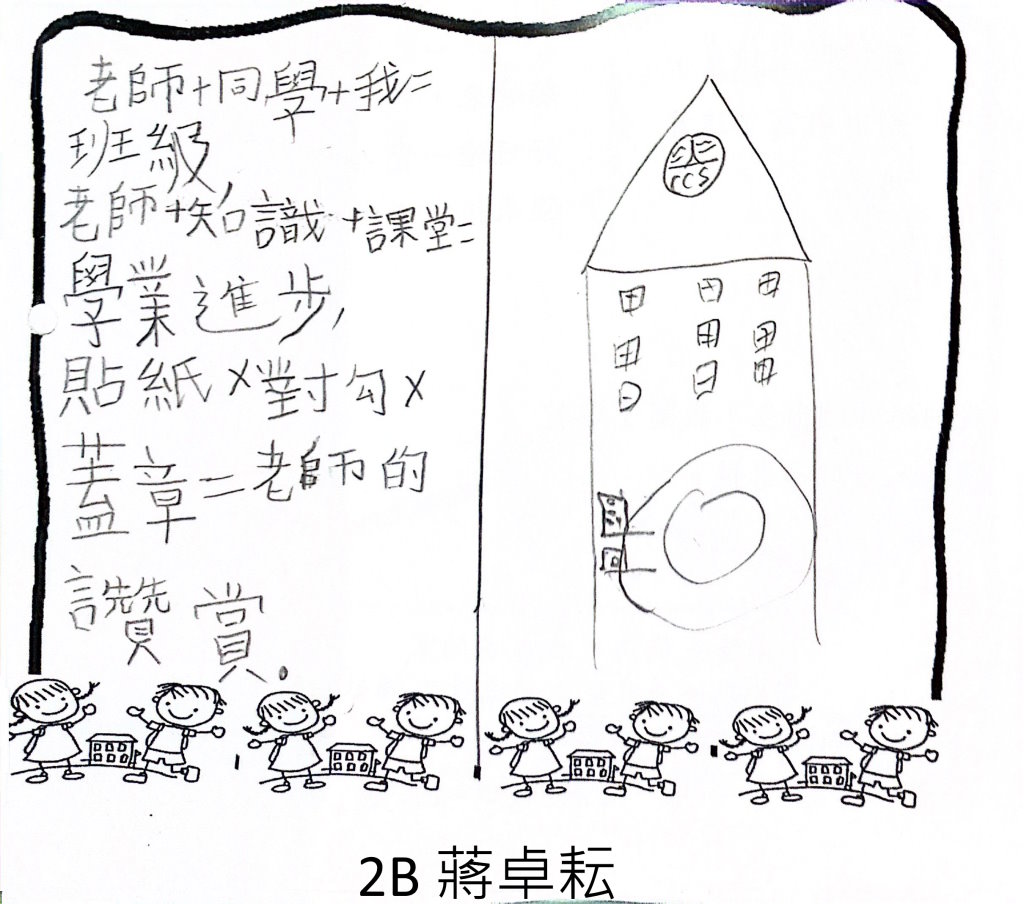 老師+同學+我=
班級,
老師+知識+課堂=
學業進步,
貼紙×對勾×
蓋章=老師的
讚賞.
rcs
2B 蔣卓耘